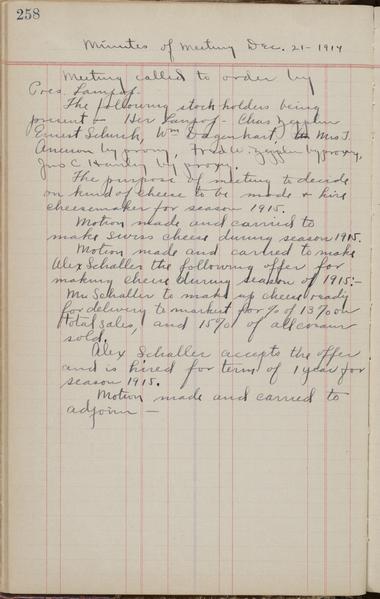 258
Minutes of Meeting Dec. 21-1914
Meeting called to order by
Pres. Lampof.
The following stockholders being
present - Her Lampof - Chas Zeggler
Ernest Schurch, Wm Dagenhart, Mrs J.
by proxy, Fred W. Zeggler by proxy,
Jno C by proxy.
The purpose of meeting to decide
on kind of cheese to be made & hire
cheesemaker for season 1915.
Motion made and carried to
make swiss cheese during season 1915.
Motion made and carried to make
Alex Schaller the following offer for
making cheese during season of 1915:-
Mr Schaller to make up cheese ready
for delivery to market for % of 13% on
total sales, and 15% of all cream
sold.
Alex Schaller accepts the offer
and is hired for term of 1 year for
season 1915.
Motion made and carried to
adjourn -